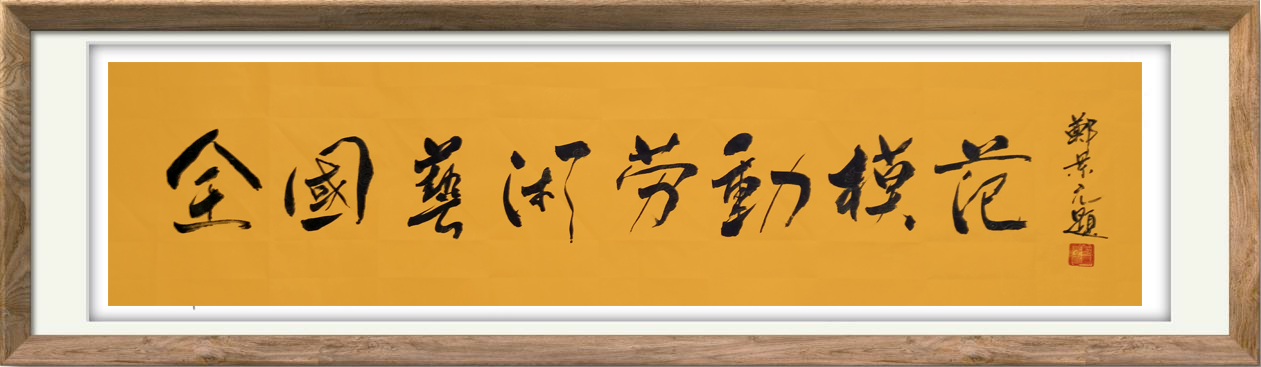 全國藝術劳動模范
鄭景元題